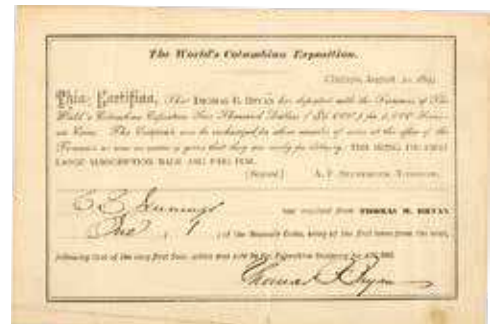 The World's Columbian Exposition.
Chicago, August
This Certifies, That THOMAS B. BRYAN has deposited with the Treasurer of The
World's Columbian Exposition Five Thousand Dollars ( $5,000 ) for
Coins. This Certificate will be exchanged for above number of coins at the office of the
Treasurer as soon as notice is given that they are ready for delivery, THIS BEING THE FIRST
LARGE SUBSCRIPTION MADE AND PAID FOR.
[Signed] A. F. SEEBERGER, Treasurer.
Jennings
has received from THOMAS B. BRYAN
One , 1 , of the Souvenir Coins, being of the first issue from the mint,
following that of the very first Coin, which was sold by the Exposition Company for
Thomas B. Bryan